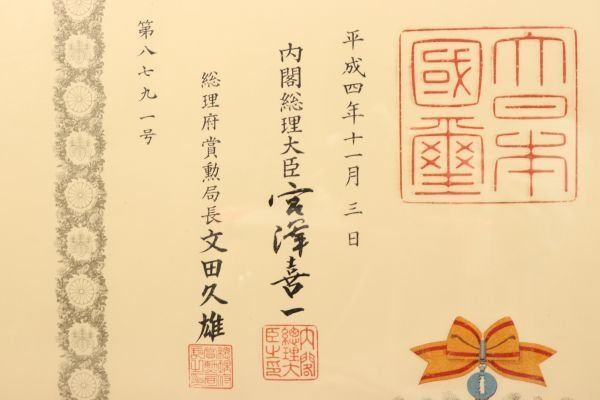 大日本
國璽
平成四年十一月三日
内閣総理大臣 宮澤喜一
内閣
総理大
臣之印
総理府賞勲局長 文田久雄
第八七九一号